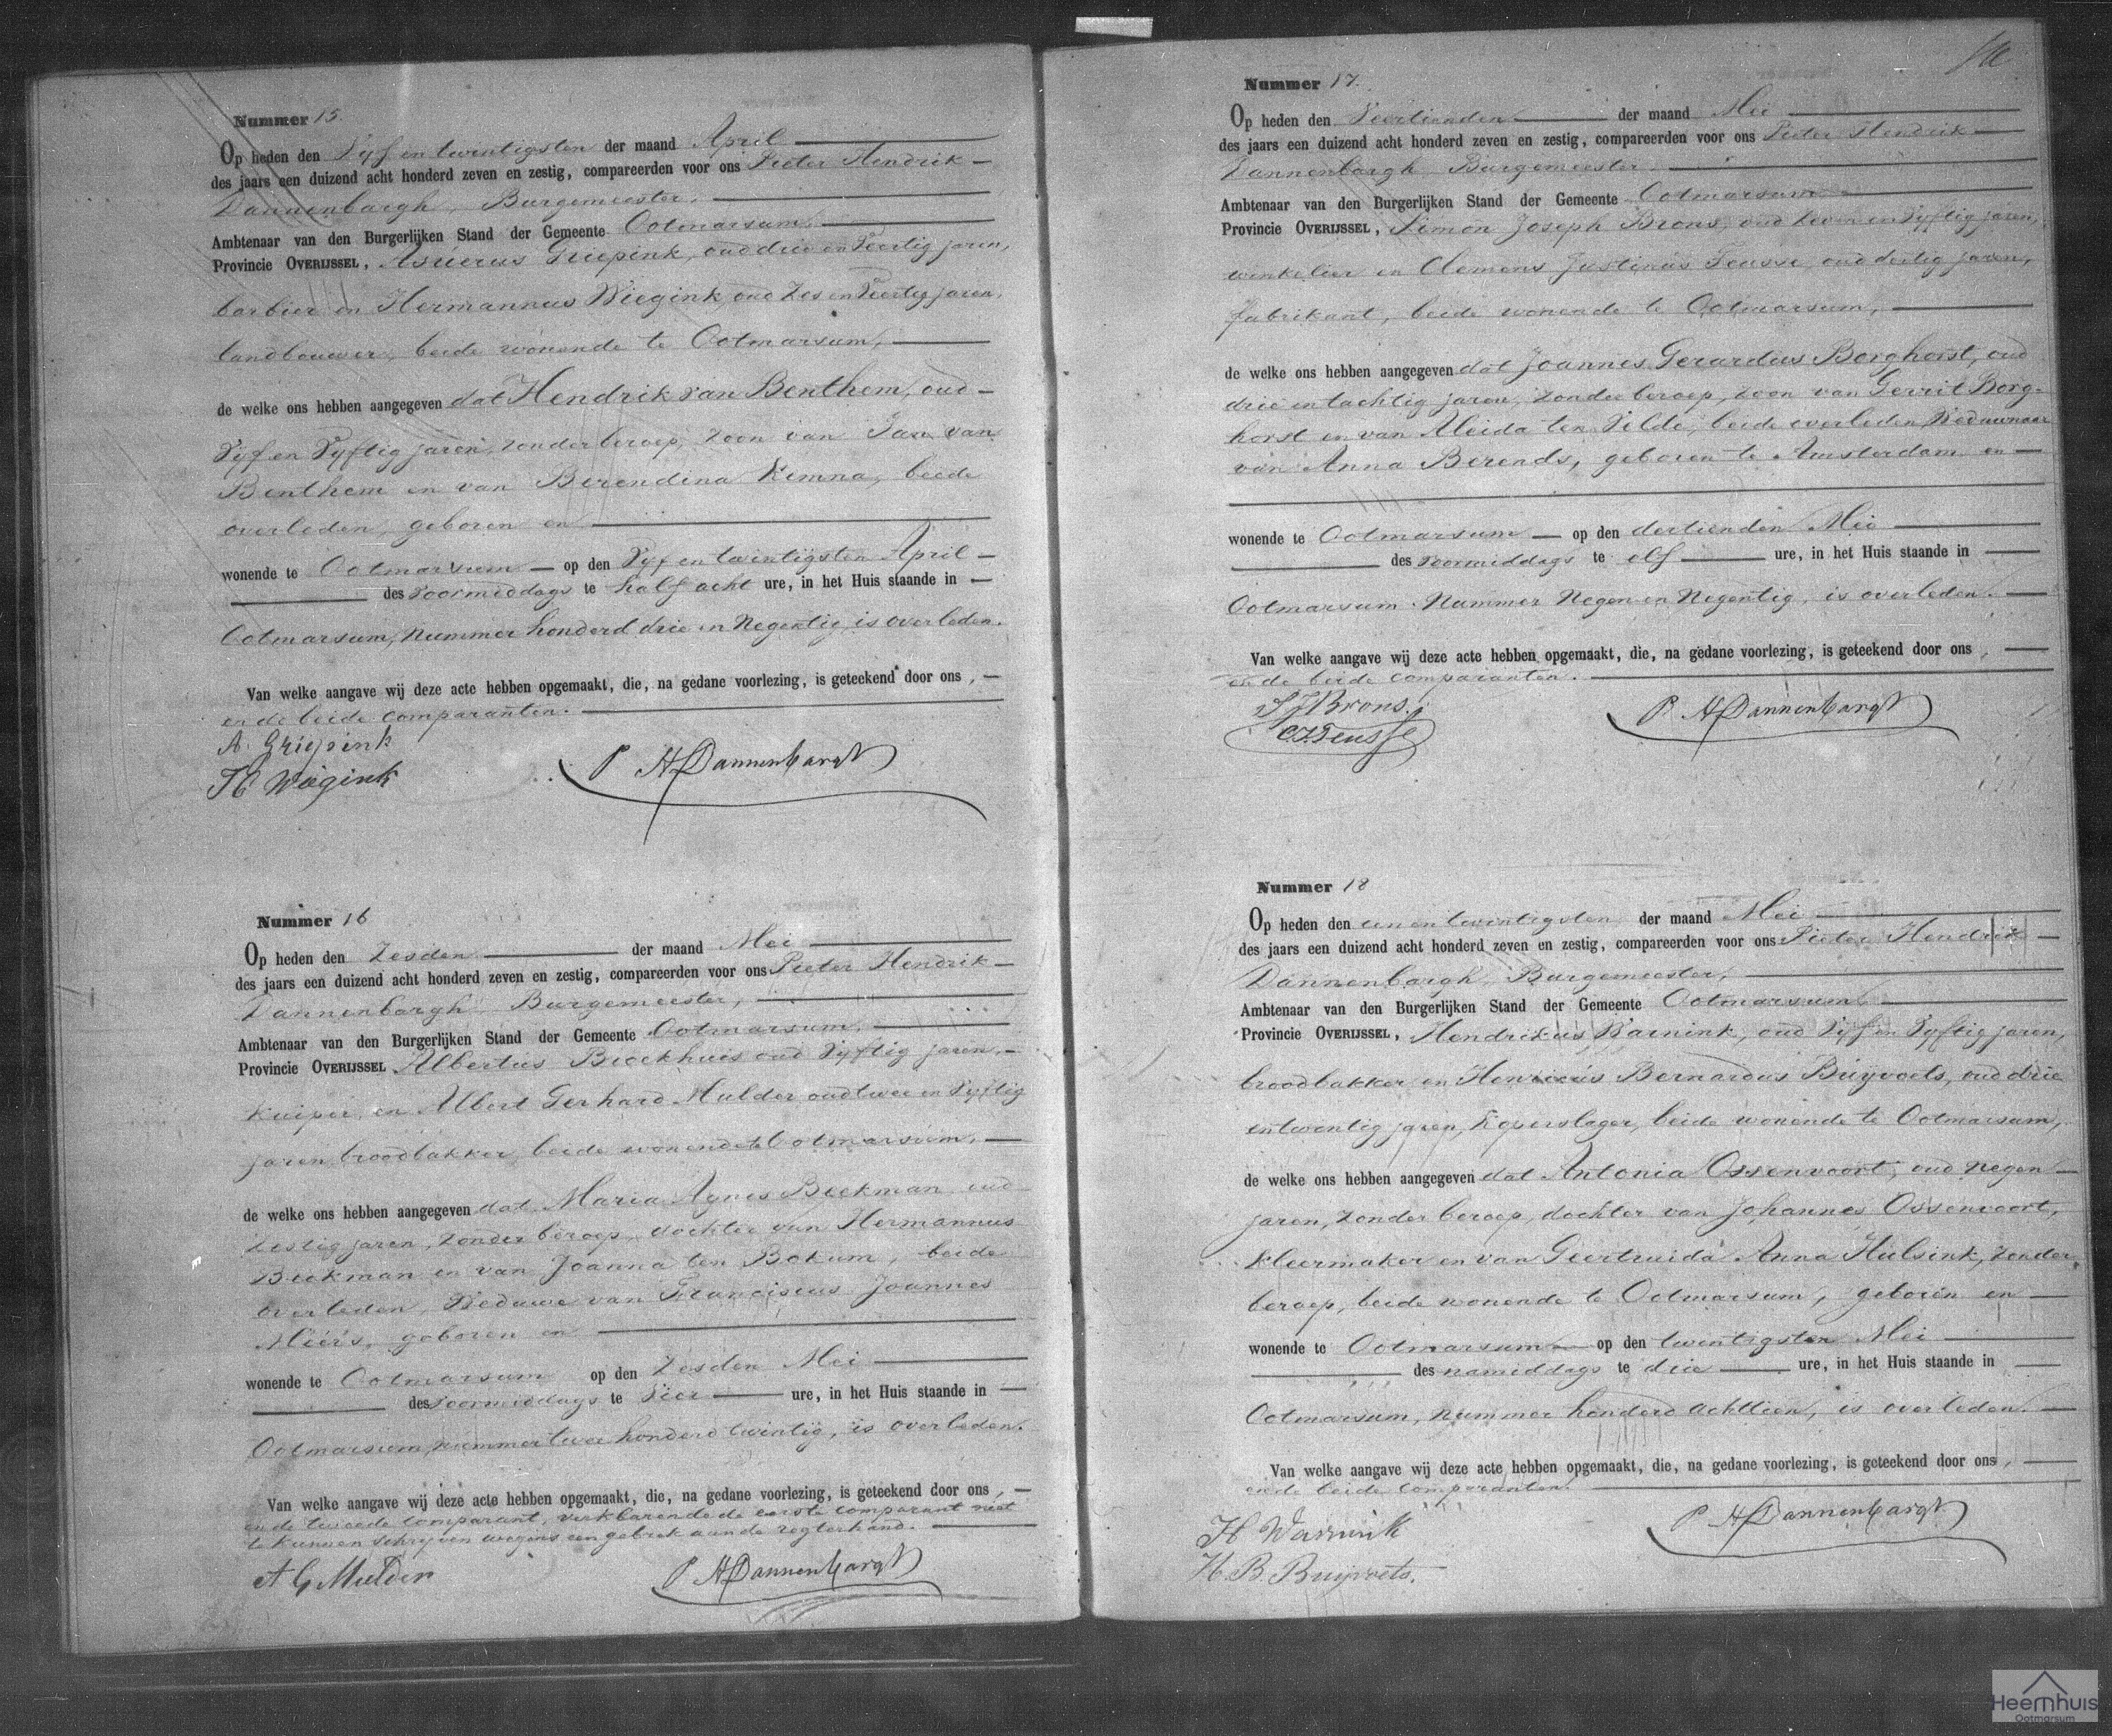 Nummer 15.
Op heden den Vyf en twintigsten der maand April
des jaars een duizend acht honderd zeven en zestig, compareerden voor ons Pieter Hendrik
Dannenbargh, Burgemeester,
Ambtenaar van den Burgerlijken Stand der Gemeente Ootmarsum,
Provincie OVERIJSSEL, Asuerus Griepink, oud drie en Veertig jaren,
barbier en Hermannus Wiegink, oud Zes en Veertig jaren,
landbouwer, beide wonende te Ootmarsum,
de welke ons hebben aangegeven dat Hendrik van Benthem, oud
Vyf en Vyftig jaren, zonder beroep, zoon van Jan van
Benthem en van Berendina Kemna, beide
overleden, geboren en
wonende te Ootmarsum op den Vyf en twintigsten April
des Voormiddags te half acht ure, in het Huis staande in
Ootmarsum, nummer honderd drie en Negentig, is overleden.
Van welke aangave wij deze acte hebben opgemaakt, die, na gedane voorlezing, is geteekend door ons,
en de beide comparanten.
A. Griepink
H Wiegink
P H Dannenbargh
Nummer 16
Op heden den Zesden der maand Mei
des jaars een duizend acht honderd zeven en zestig, compareerden voor ons Pieter Hendrik
Dannenbargh Burgemeester,
Ambtenaar van den Burgerlijken Stand der Gemeente Ootmarsum,
Provincie OVERIJSSEL Albertus Brockhuis oud Vyftig jaren,
kuiper en Albert Gerhard Mulder oud twee en Vyftig
jaren broodbakker, beide wonende te Ootmarsum,
de welke ons hebben aangegeven dat Maria Agnes Beekman oud
Zestig jaren, zonder beroep, dochter van Hermannus
Beekman en van Joanna ten Bokum, beide
overleden, Weduwe van Franciscus Joannes
geboren en
wonende te Ootmarsum op den Zesden Mei
des Voormiddags te Vier ure, in het Huis staande in
Ootmarsum, nummer twee honderd twintig, is overleden.
Van welke aangave wij deze acte hebben opgemaakt, die, na gedane voorlezing, is geteekend door ons,
en de tweede comparant, verklarende de eerste comparant niet
te kunnen schrijven wegens een gebrek aan de regterhand.
A G Mulder
P H Dannenbargh
Nummer 17.
Op heden den Veertienden der maand Mei
des jaars een duizend acht honderd zeven en zestig, compareerden voor ons Pieter Hendrik
Dannenbargh, Burgemeester
Ambtenaar van den Burgerlijken Stand der Gemeente Ootmarsum
Provincie OVERIJSSEL, Simon Joseph Brons, oud Zeven en Vyftig jaren,
winkelier en Clemens Justinus Teusse, oud dertig jaren,
fabrikant, beide wonende te Ootmarsum,
de welke ons hebben aangegeven dat Joannes Gerardus Borghorst, oud
drie en tachtig jaren, zonder beroep, zoon van Gerrit Borg-
horst en van Aleida ten Velde, beide overleden, Weduwnaar
van Anna Berends, geboren te Amsterdam en
wonende te Ootmarsum op den dertienden Mei
des Voormiddags te elf ure, in het Huis staande in
Ootmarsum. Nummer Negen en Negentig, is overleden.
Van welke aangave wij deze acte hebben opgemaakt, die, na gedane voorlezing, is geteekend door ons,
en de beide comparanten.
S J Brons.
C J Teusse
P H Dannenbargh
Nummer 18
Op heden den een en twintigsten der maand Mei
des jaars een duizend acht honderd zeven en zestig, compareerden voor ons Pieter Hendrik
Dannenbargh, Burgemeester,
Ambtenaar van den Burgerlijken Stand der Gemeente Ootmarsum,
Provincie OVERIJSSEL, Hendrikus oud Vyf en Vyftig jaren,
broodbakker en Henricus Bernardus Buijvoets, oud drie
en twintig jaren, Koperslager, beide wonende te Ootmarsum,
de welke ons hebben aangegeven dat Antonia Ossenvoort, oud negen
jaren, zonder beroep, dochter van Johannes Ossenvoort,
kleermaker en van Geertruida Anna Hulsink, zonder
beroep, beide wonende te Ootmarsum, geboren en
wonende te Ootmarsum op den twintigsten Mei
des namiddags te drie ure, in het Huis staande in
Ootmarsum, nummer honderd achttien, is overleden.
Van welke aangave wij deze acte hebben opgemaakt, die, na gedane voorlezing, is geteekend door ons,
en de beide comparanten.
H
H. B. Buijvoets.
P H Dannenbargh
Heemhuis
Ootmarsum